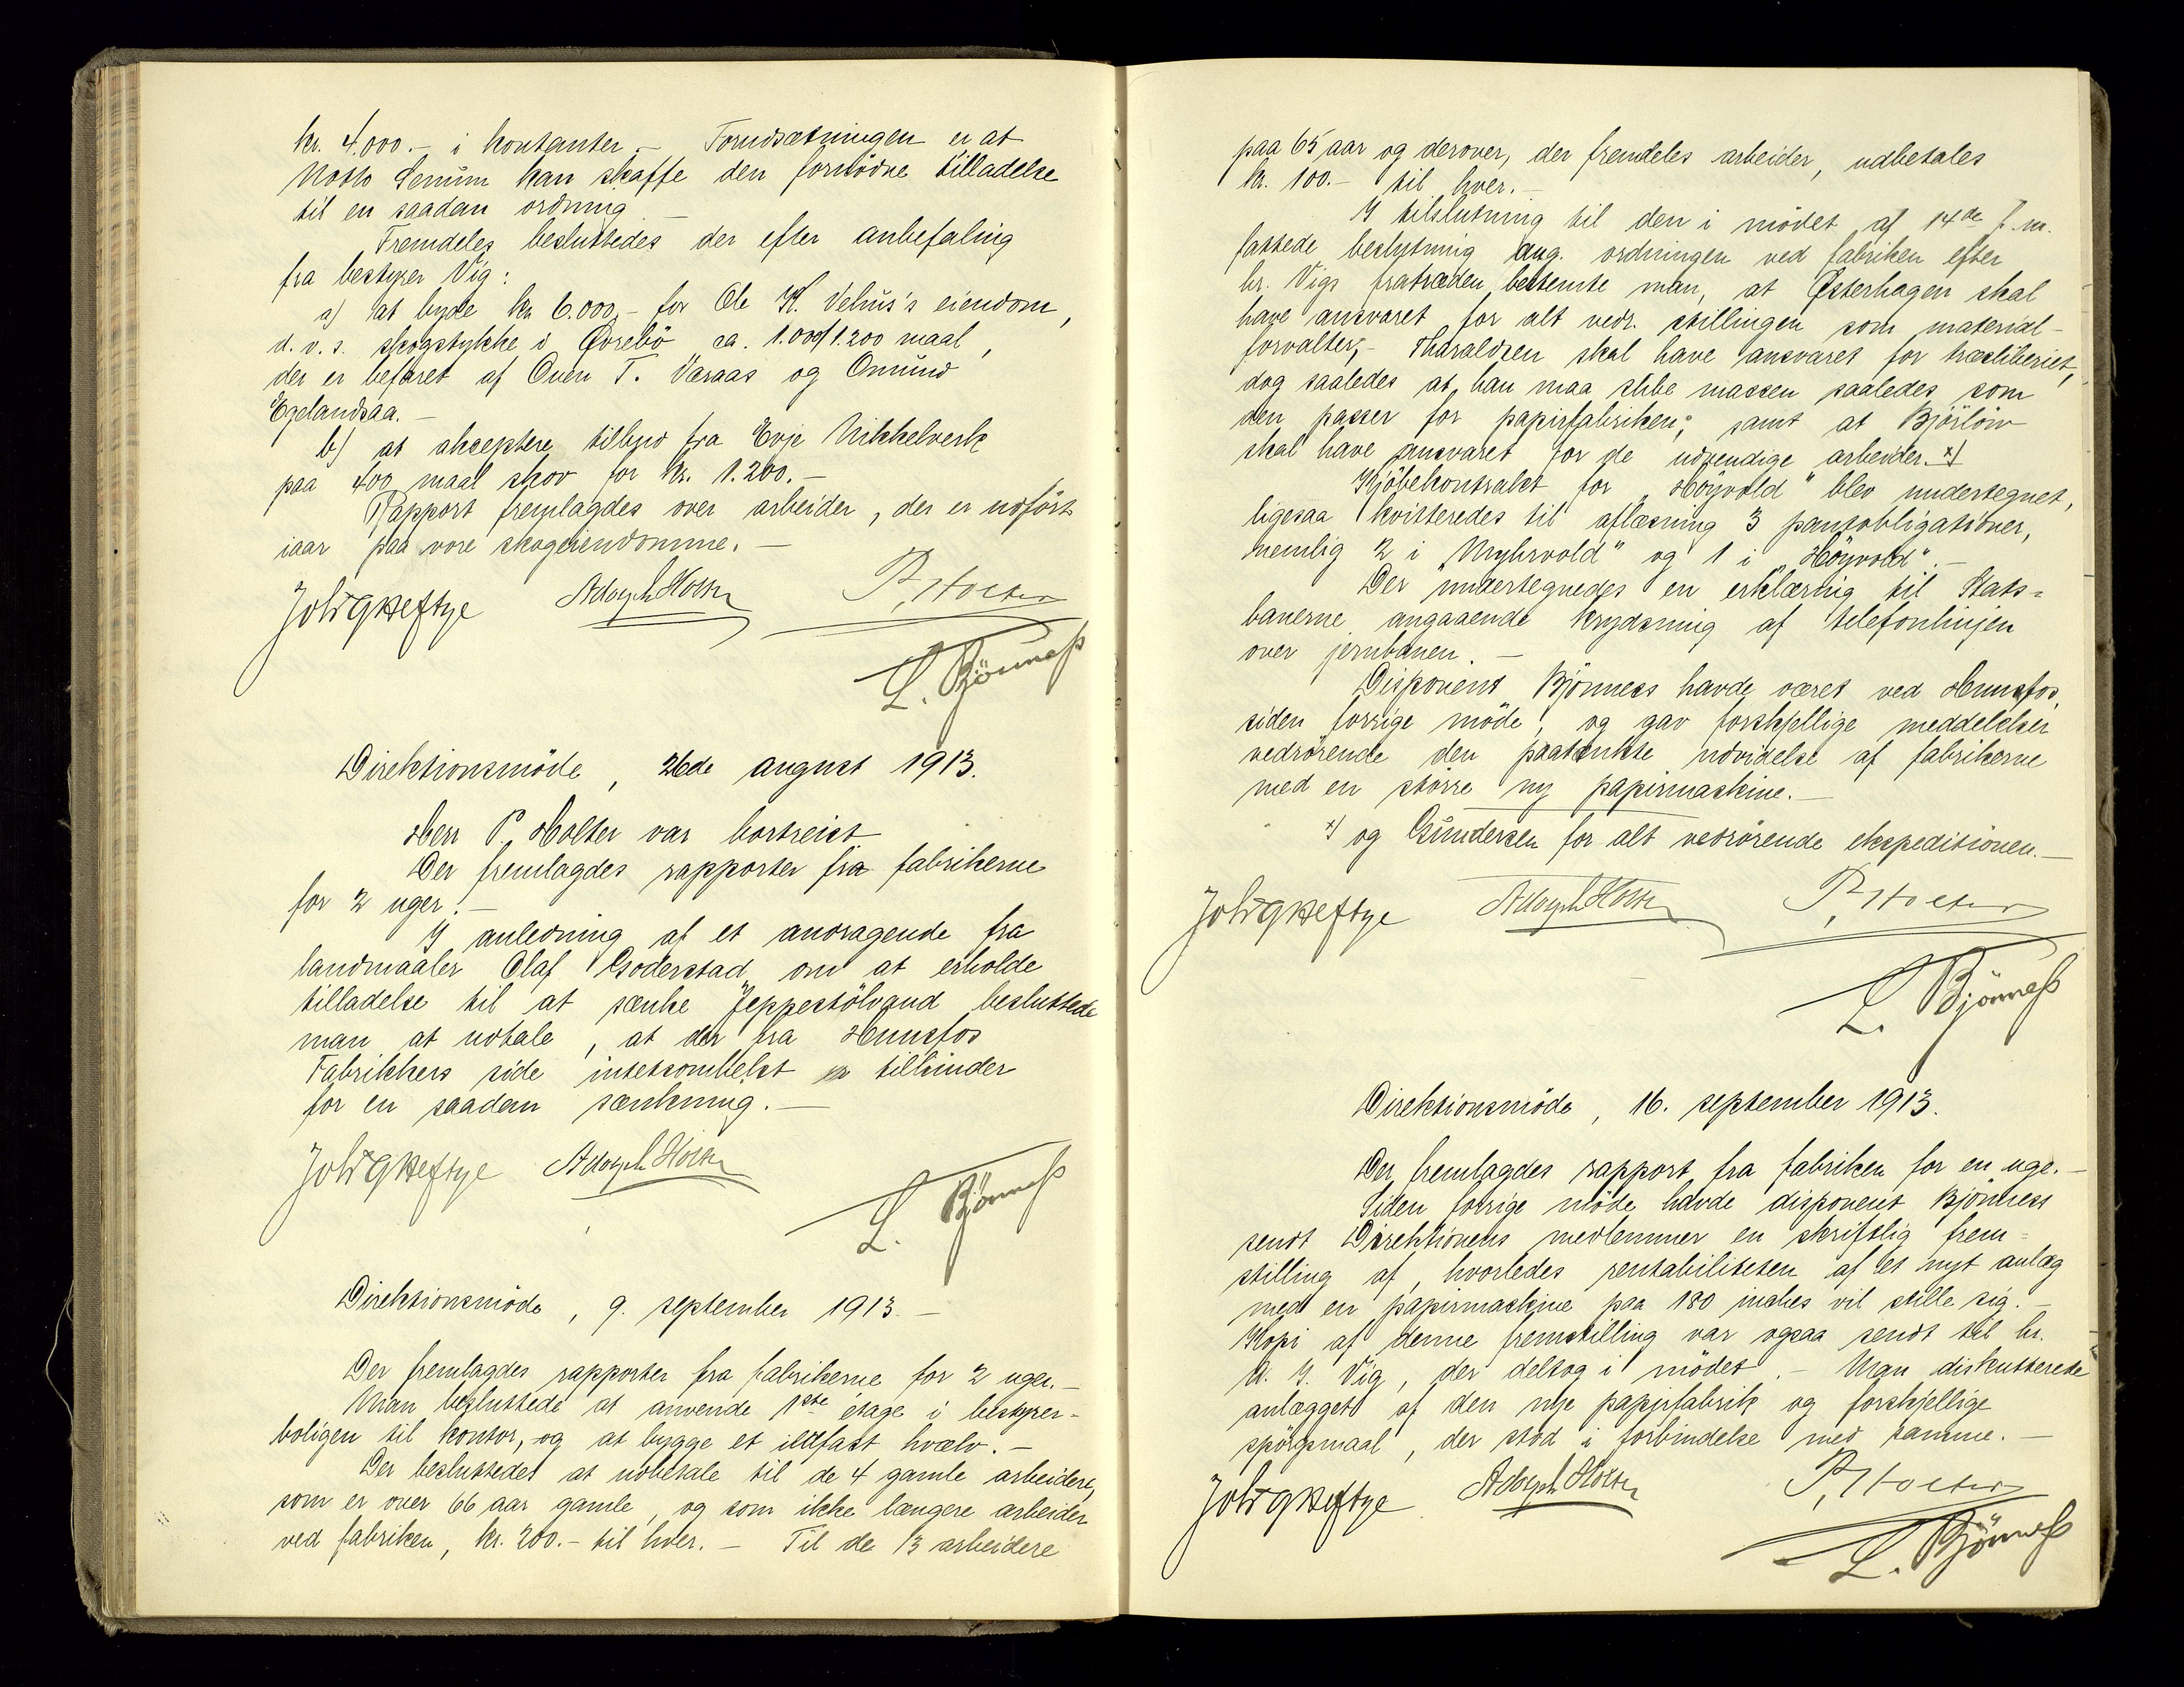 kr. 4.000.- i kontanter.- Forudsætningen er at
Notto Senum kan skaffe den fornödne tilladelse
til en saadan ordning.-
Fremdeles besluttedes der efter anbefaling
fra bestyrer Vig:
a) at byde kr. 6.000,- for Ole K. Vehus's eiendom,
d.v.s. skogstykke i Øvrebö ca. 1.000/1.200 maal,
der er befaret af Oven T. Væraas og Omund
Egelandsaa.-
b) at akseptere tilbud fra Evje Nikkelverk
paa 400 maal skov for kr. 1.200.-
Rapport fremlagdes over arbeider, der er udfört
iaar paa vore skogeiendomme.-
Joh G Heftye Adolph Holter P. Holter
L. Bjönness
Direktionsmöde, 26de august 1913.
Herr P. Holter var bortreist
Der fremlagdes rapporter fra fabrikerne
for 2 uger.-
I anledning af et andragende fra
landmaaler Olaf Goderstad om at erholde
tilladelse til at sænke Jeppestölvand besluttede
man at udtale, at der fra Hunsfos
Fabrikkers side intetsomhelst er tilhinder
for en saadan sænkning.-
Joh G Heftye Adolph Holter
L. Bjönness
Direktionsmöde, 9. september 1913.-
Der fremlagdes rapporter fra fabrikerne for 2 uger.-
Man besluttede at anvende 1ste étage i bestyrer-
boligen til kontor, og at bygge et ildfast hvælv.-
Der besluttedes at udbetale til de 4 gamle arbeidere,
som er over 66 aar gamle, og som ikke længere arbeider
ved fabriken, kr. 200.- til hver.- Til de 13 arbeidere
paa 65 aar og derover, der fremdeles arbeider, udbetales
kr. 100.- til hver.-
I tilslutning til den i mödet af 14de f.m.
fattede beslutning ang. ordningen ved fabriken efter
hr. Vigs fratræden bestemte man, at Østerhagen skal
have ansvaret for alt vedr. stillingen som material-
forvalter;- Tharaldsen skal have ansvaret for træsliberiet,
dog saaledes at han maa slibe massen saaledes som
den passer for papirfabriken; samt at Björlöw
skal have ansvaret for de udvendige arbeider. x)
Kjöbekontrakt for "Höyvold" blev undertegnet,
ligesaa kvitteredes til aflæsning 3 pantobligationer,
nemlig 2 i "Myhrvold" og 1 i "Höyvold".-
Der undertegnedes en erklæring til Stats-
banerne angaaende krydsning af telefonlinjen
over jernbanen.-
Disponent Bjönness havde været ved Hunsfos,
siden forrige möde, og gav forskjellige meddelelser
vedrörende den paatænkte udvidelse af fabrikerne
med en större ny papirmaskine.-
x) og Gundersen for alt vedrörende ekspeditionen.-
Joh G Heftye Adolph Holter P. Holter
L. Bjönness
Direktionsmöde, 16. september 1913.
Der fremlagdes rapport fra fabriken for en uge.-
Siden forrige möde havde disponent Bjönness
sendt Direktionens medlemmer en skriftlig frem-
stilling af, hvorledes rentabiliteten af et nyt anlæg
med en papirmaskine paa 180 inches vil stille sig.-
Kopi af denne fremstilling var ogsaa sendt til hr.
N. J. Vig, der deltog i mödet.- Man diskutterede
anlægget af den nye papirfabrik og forskjellige
spörgsmaal, der stod i forbindelse med samme.-
Joh G Heftye Adolph Holter P. Holter
L. Bjönness